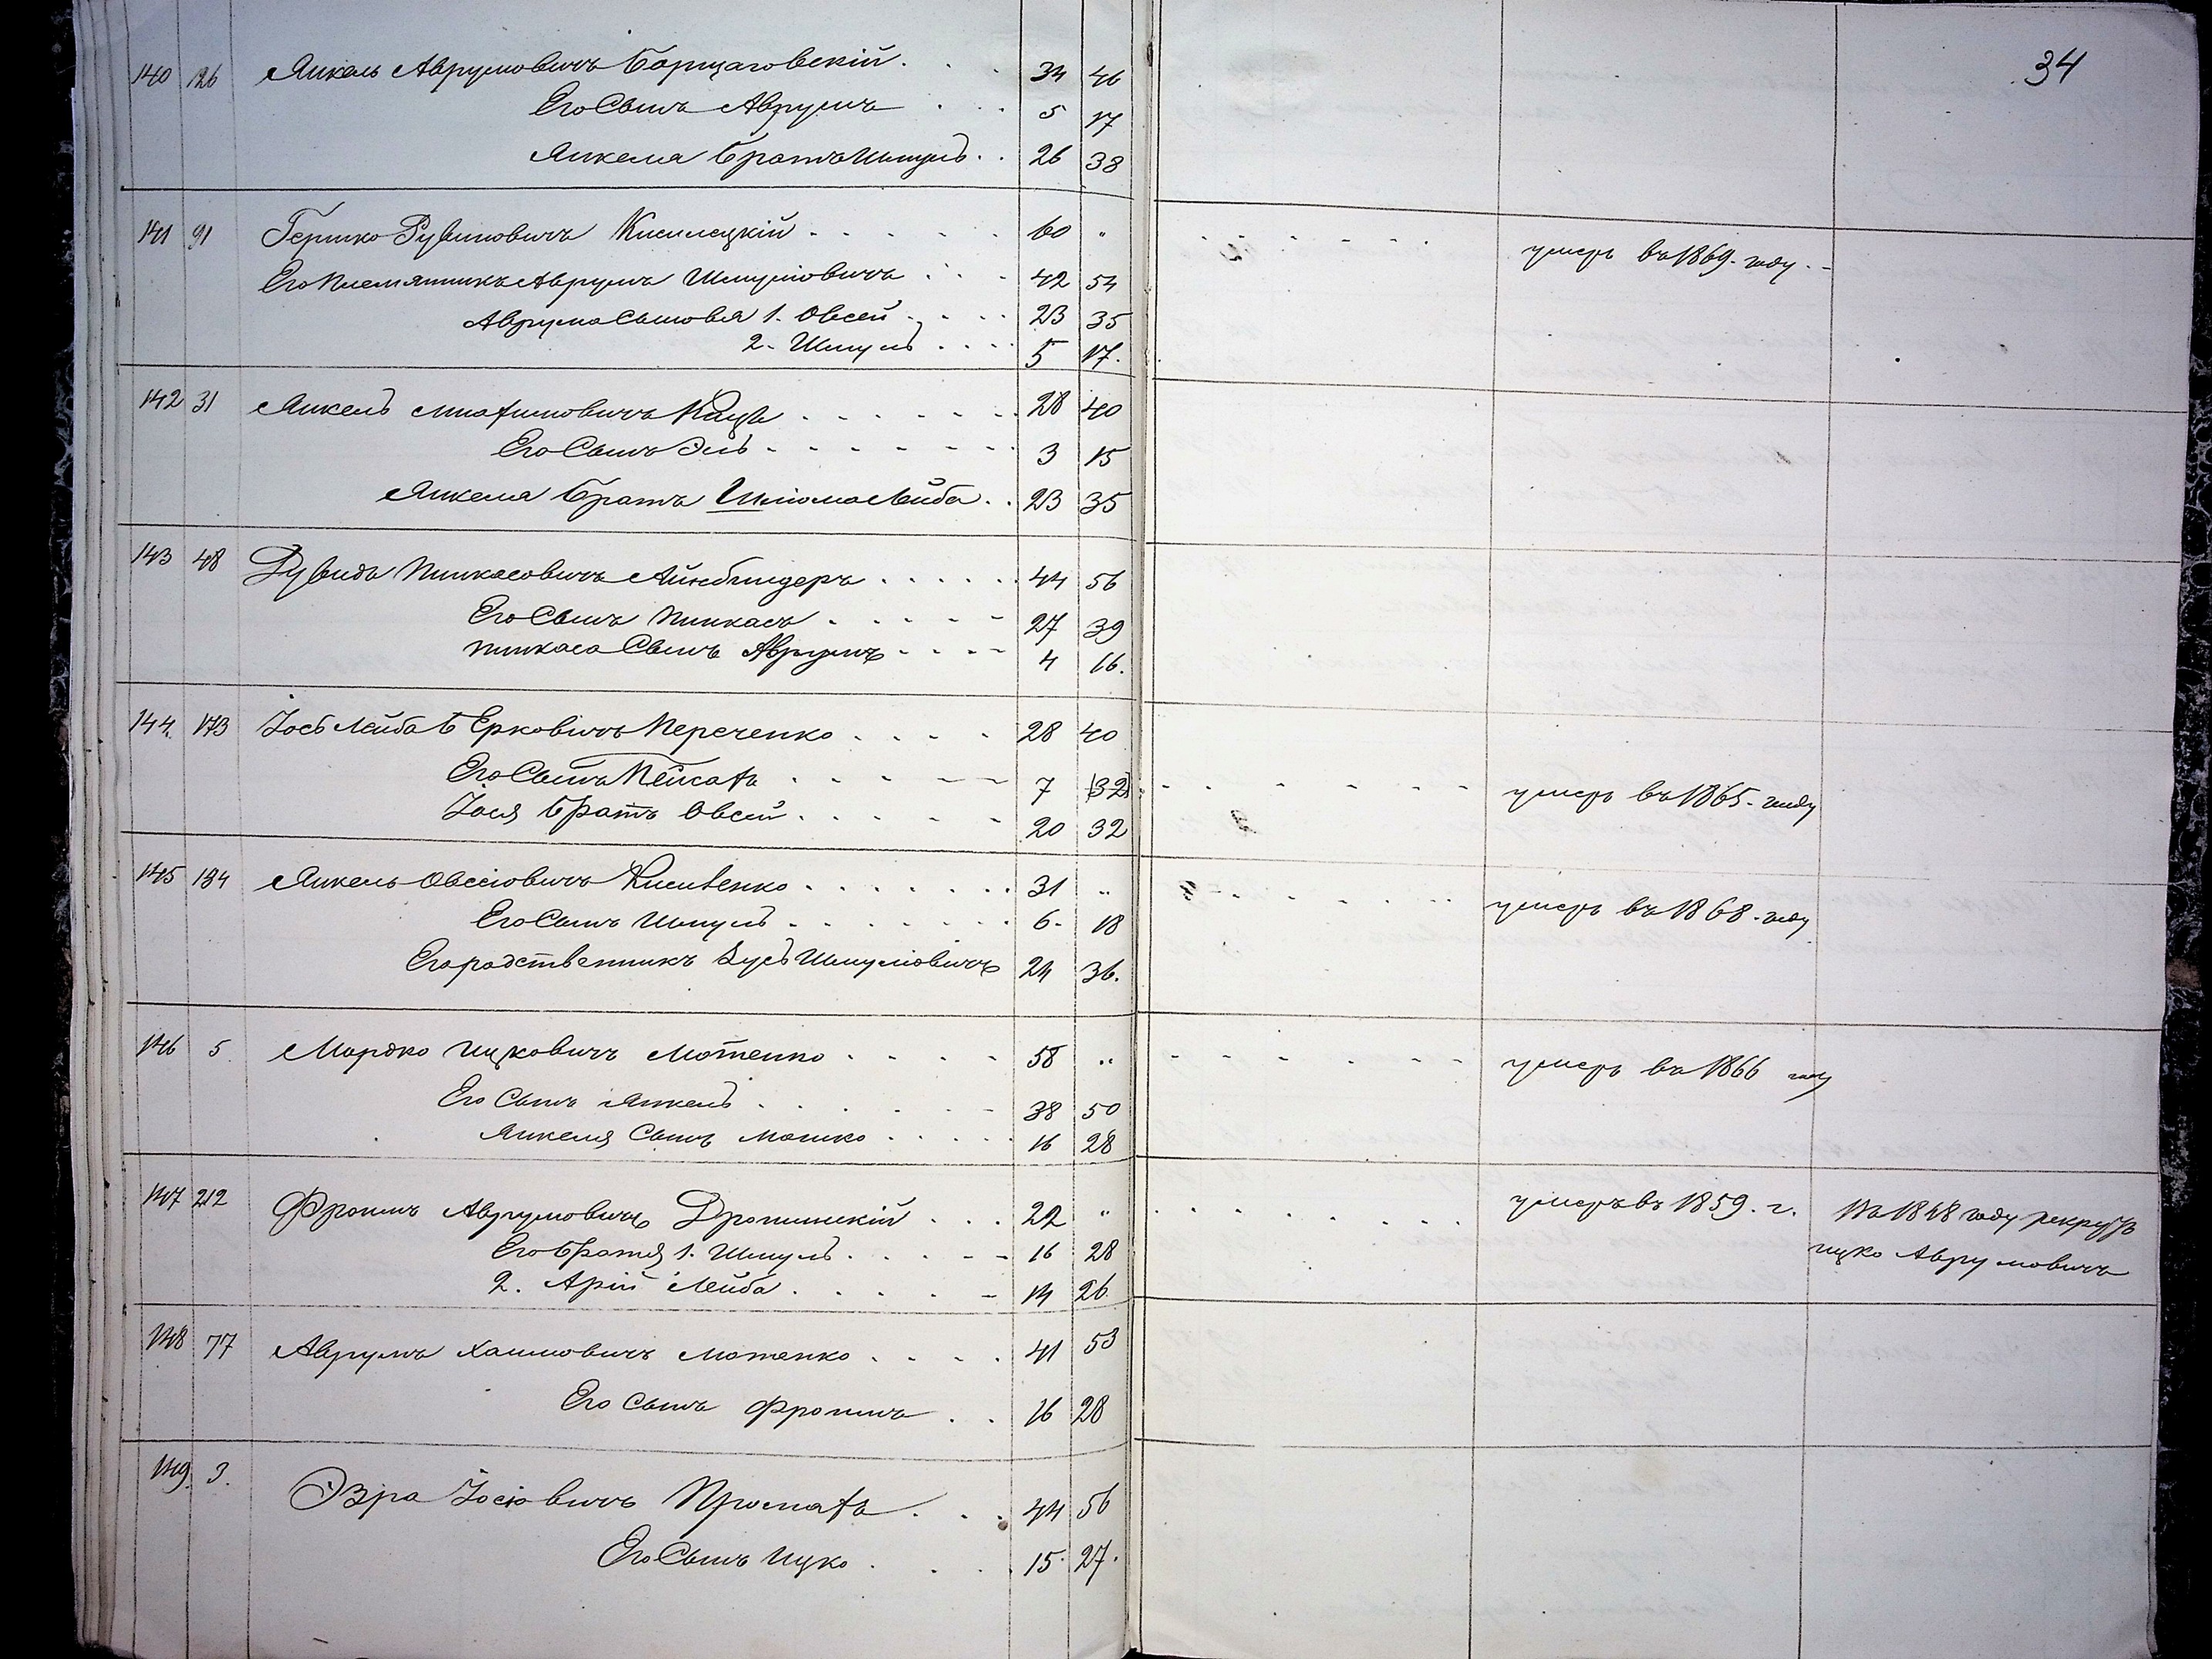 34
140 126 Янкель Аврумовичъ Борщаговскій . . . 34 46
Его Сынъ Аврумъ . . . 5 17
Янкеля Братъ Шмуль . . 26 38
141 91 Гершко Рувиновичъ Кисилецкій - - - - - 60 " - - - - - умеръ въ 1869. году. -
Его Племянникъ Аврумъ Шмуліовичъ . . - 42 54
Аврума Сыновья 1. Овсей . - . . 23 35
2. Шмуль . . . 5 17.
142 31 Янкель Кацъ . - - - - - . 28 40
Его Сынъ Эль - - - - - - - 3 15
Янкеля Братъ Шліома Лейба . . 23 35
143 48 Дувидъ Пинкасовичъ Айнбиндеръ . . . . . . 44 56
Его Сынъ Пинкасъ . - - - - 27 39
Пинкаса Сынъ Аврумъ - - - - 4 16.
144. 173 Іось Лейба Берковичъ Переченко . . - . - 28 40
Его Сынъ Пейсахъ . . - - - - 7 (32) - - - - - - умеръ въ 1865. году
Іося Братъ Овсей . . . . - - 20 32
145 184 Янкель Овсеіовичъ . . . . . . . 31 " - - - - - умеръ въ 1868. году
Его Сынъ Шмуль - - - - - - . 6. 18
Его родственникъ Зусь Шмуліовичъ 24 36.
146 5. Мордко Ицковичъ Мотенко . - - - - 58 " - - - - - - умеръ въ 1866 году
Его Сынъ Янкель . . . - - - 38 50
Янкеля Сынъ Мошко . . . . . 16 28
147 212 Фроимъ Аврумовичъ . . . 22 " . . . . . . . умеръ въ 1859. г. Въ 1848 году рекрутъ
Его Братья 1. Шмуль . . . . - - 16 28 Ицко Аврумовичъ
2. Арій Лейба . . . . - - 14 26
148 77 Аврумъ Хаимовичъ Мотенко . . . . 41 53
Его Сынъ Фроимъ . . 16 28
149. 3. Эзра Іосіовичъ . . . 44 56
Его Сынъ Ицко . . . 15. 27.